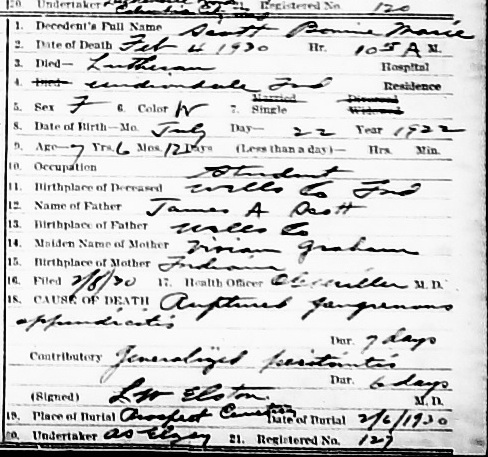 20. Undertaker Registered No. 120
1. Decedent's Full Name Scott Bonnie Marie
2. Date of Death Feb 4 1930 Hr. 10 5 A M.
3. Died— Lutheran Hospital
4. Died— Ind Residence
5. Sex F 6. Color W 7. Married Single Divorced Widowed
8. Date of Birth—Mo. July Day— 22 Year 1922
9. Age—7 Yrs. 6 Mos. 12 Days (Less than a day)— Hrs. Min.
10. Occupation Student
11. Birthplace of Deceased Wells Co Ind
12. Name of Father James A Scott
13. Birthplace of Father Wells Co
14. Maiden Name of Mother Vivian Graham
15. Birthplace of Mother Indiana
16. Filed 2/8/30 17. Health Officer M. D.
18. CAUSE OF DEATH Ruptured gangrenous
appendicitis
Dur. 7 days
Contributory Generalized peritonitis
Dur. 6 days
(Signed) L W Elston M. D.
19. Place of Burial Prospect Cemetery Date of Burial 2/6/1930
20. Undertaker 21. Registered No. 127